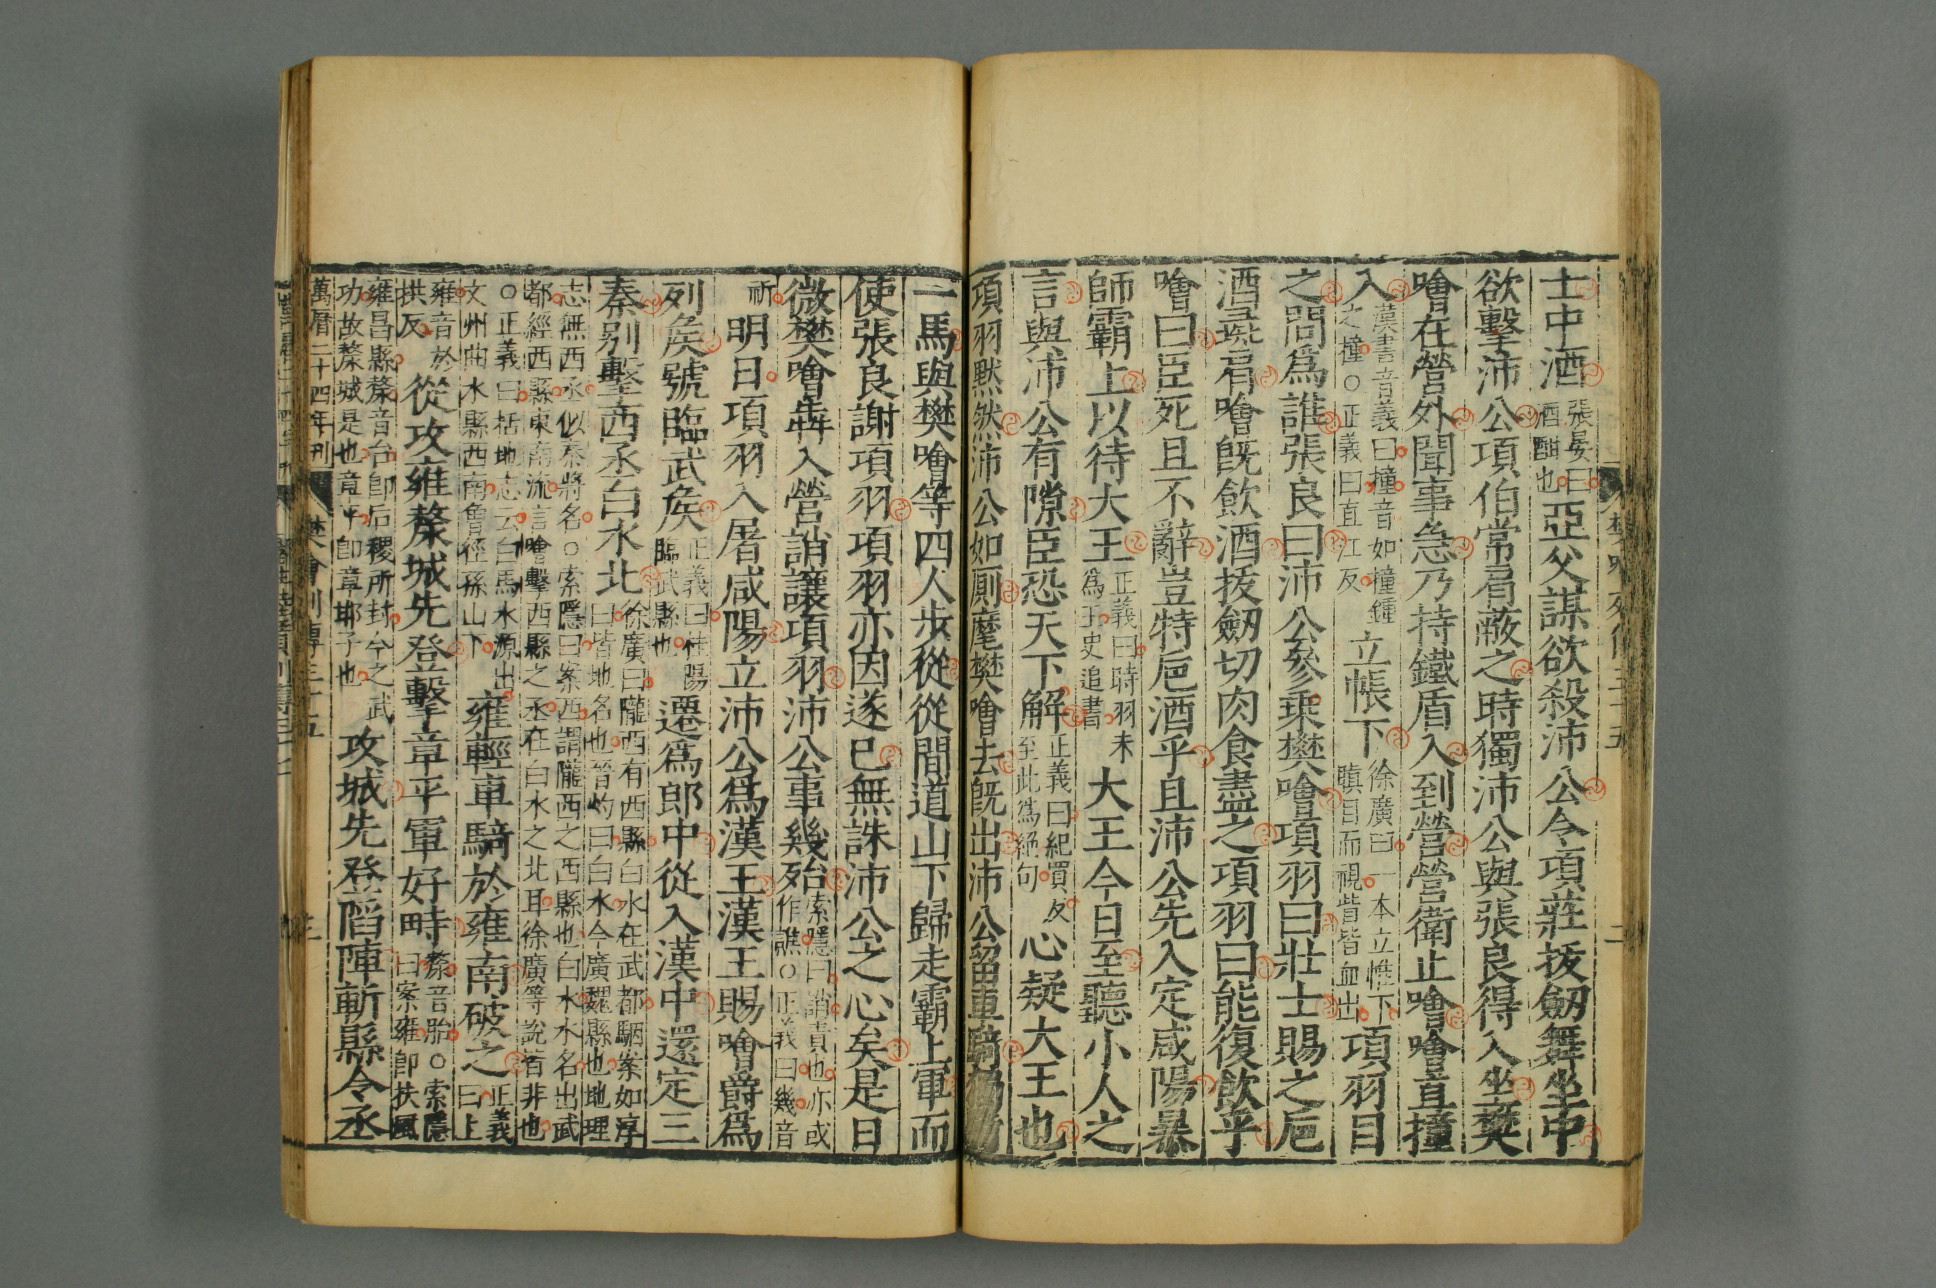 士中酒張晏曰酒酣也亞父謀欲殺沛公令項莊拔劒舞坐中
欲擊沛公項伯常肩蔽之時獨沛公與張良得入坐樊
噲在營外聞事急乃持鐵盾入到營營衛止噲噲直撞
入漢書音義曰撞音如撞鍾之撞○正義曰直江反立帳下徐廣曰一本立帷下瞋目而視眥皆血出項羽目
之問爲誰張良曰沛公參乗樊噲項羽曰壯士賜之巵
酒彘肩噲既飲酒拔劒切肉食盡之項羽曰能復飲乎
噲曰臣死且不辭豈特巵酒乎且沛公先入定咸陽暴
師霸上以待大王正義曰時羽未爲王史追書大王今日至聽小人之
言與沛公有隙臣恐天下解正義曰紀買反至此爲絕句心疑大王也
項羽默然沛公如厠麾樊噲去既出沛公留車騎
一馬與樊噲等四人步從從間道山下歸走霸上軍而
使張良謝項羽項羽亦因遂已無誅沛公之心矣是日
微樊噲犇入營誚讓項羽沛公事幾殆索隱曰誚責也亦或作譙○正義曰幾音
祈明日項羽入屠咸陽立沛公爲漢王漢王賜噲爵爲
列矦號臨武矦正義曰桂陽臨武縣也遷爲郎中從入漢中還定三
秦别擊西丞白水北徐廣曰隴西有西縣白水在武都駰案如淳曰皆地名也晉灼曰白水今廣魏縣也地理
志無西丞似秦將名○索隱曰案西謂隴西之西縣也白水水名出武都經西縣東南流言噲擊西縣之丞在白水之北耳徐廣等說皆非也
○正義曰括地志云白馬水源出文州曲水縣西南會經孫山下雍輕車騎於雍南破之正義曰上
雍音於拱反從攻雍斄城先登擊章平軍好畤斄音胎○索隱曰案雍卽扶風
雍昌縣斄音台卽后稷所封今之武功故斄城是也章平卽章邯子也攻城先登陷陣斬縣令丞
萬曆二十四年刊
樊噲列傳三十五
三